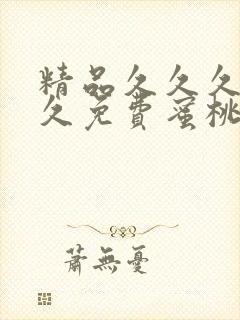 精品久久久
久免費蜜桃
蕭無憂